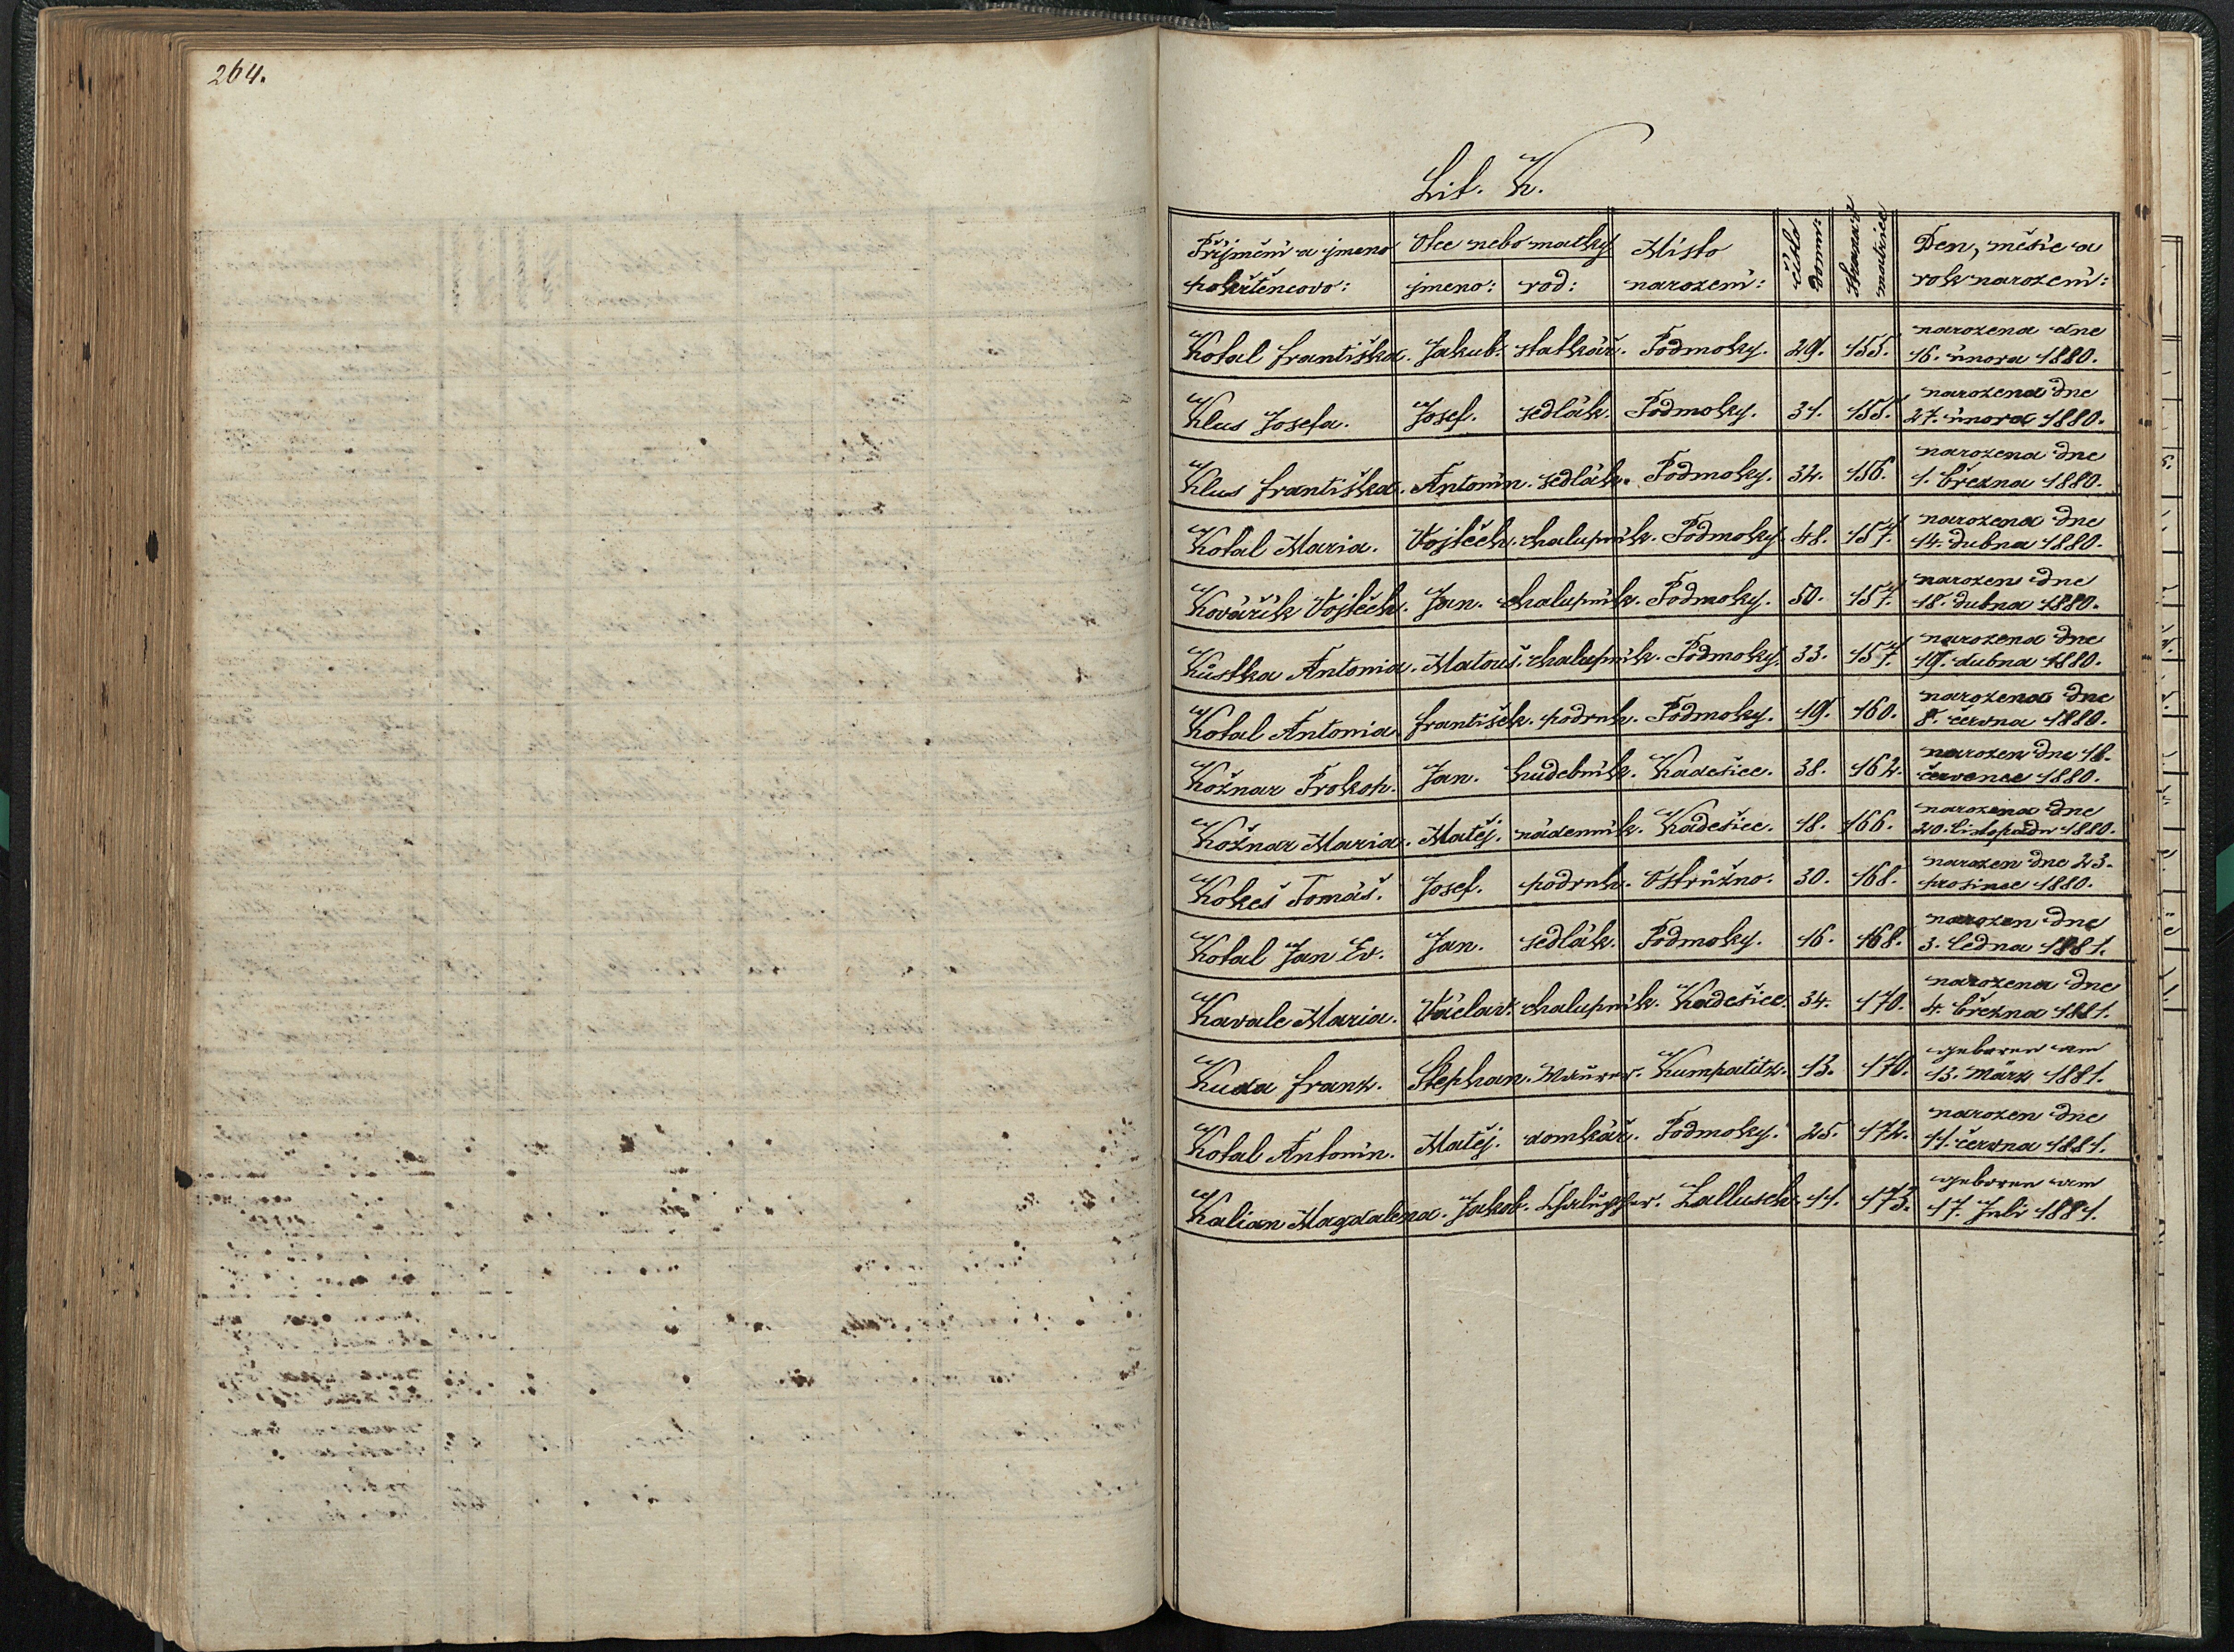 264.
Lit. K.
Příjmění a jmeno pokřtěncovo: Otce nebo matky jmeno: rod: Místo narození: číslo domu: Strana matrice Den, měsíc a rok narození:
Kotal Františka. Jakub. statkář. Podmoky. 29. 155. narozena dne 16. února 1880.
Klus Josefa. Josef. sedlák. Podmoky. 31. 155. narozena dne 27. února 1880.
Klus Františka. Antonín. sedlák. Podmoky. 32. 156. narozena dne 1. března 1880.
Kotal Maria. Vojtěch. chalupník. Podmoky. 48. 157. narozena dne 14. dubna 1880.
Kovářík Vojtěch. Jan. chalupník. Podmoky. 50. 157. narozen dne 18. dubna 1880.
Kůstka Antonia. Matouš. chalupník. Podmoky. 33. 157. narozena dne 19. dubna 1880.
Kotal Antonia. František. podruh. Podmoky. 19. 160. narozena dne 8. června 1880.
Kožnar Prokop. Jan. hudebník. Kadešice. 38. 162. narozen dne 18. července 1880.
Kožnar Maria. Matěj. nádenník. Kadešice. 18. 166. narozena dne 20. listopadu 1880.
Kokeš Tomáš. Josef. podruh. Ostružno. 30. 168. narozen dne 23. prosince 1880.
Kotal Jan Ev. Jan. sedlák. Podmoky. 16. 168. narozen dne 3. ledna 1881.
Kavale Maria. Václav. chalupník. Kadešice. 34. 170. narozena dne 4. března 1881.
Kuda Franz. Stephan. Maurer. Kumpatitz. 13. 170. geboren am 13. März 1881.
Kotal Antonín. Matěj. domkář. Podmoky. 25. 172. narozen dne 11. června 1881.
Kalian Magdalena. Jakob. Chalupper. Zallusch. 11. 173. geboren am 17. Juli 1881.